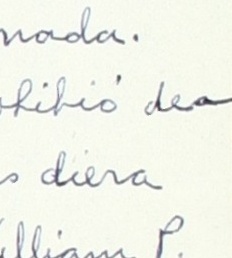 nada.
ohibió dea
s diera
illiam P.